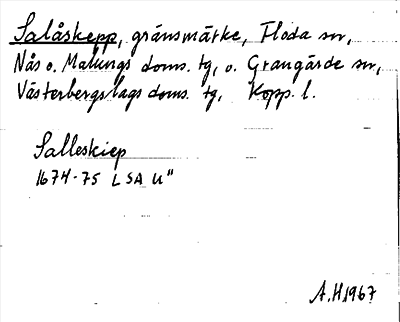 Salåskepp, gränsmärke, Floda sn,
Nås o. Malungs doms. tg, o. Grangärde sn,
Västerbergslags doms. tg, Kopp. l.
Salleskiep
1674-75 LSA U"
A.H.1967